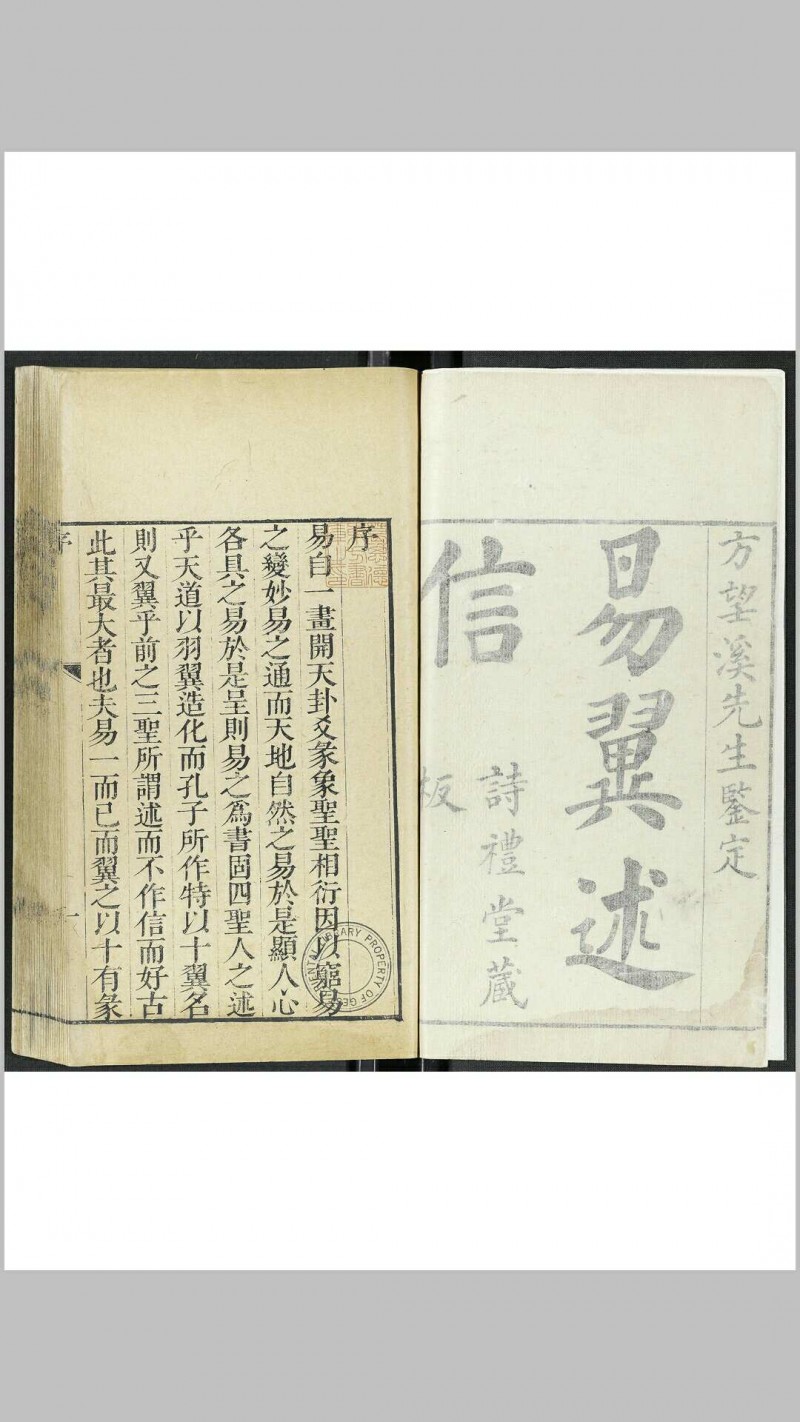 方望溪先生鑒定
易翼述
信 詩禮堂藏
板
序
易自一畫開天卦爻彖象聖聖相衍因以窮易
之變妙易之通而天地自然之易於是顯人心
各具之易於是呈則易之爲書固四聖人之述
乎天道以羽翼造化而孔子所作特以十翼名
則又翼乎前之三聖所謂述而不作信而好古
此其最大者也夫易一而已而翼之以十有彖
序
一
LIBRARY PROPERTY OF